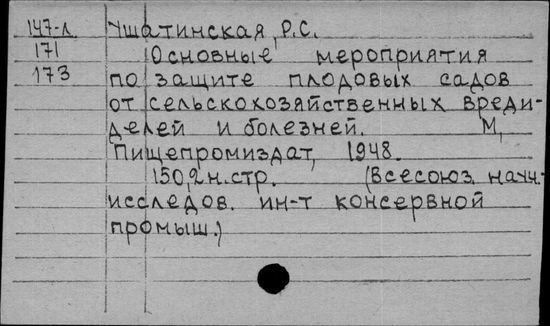 147-л Ушатинская, Р.С.
171 Основные мероприятия
173 по защите плодовых садов
от сельскохозяйственных вреди-
делей и болезней. М,
Пищепромиздат, 1948.
150,2н.стр. (Всесоюз. научн.
исследов. ин-т консервной
промыш.)